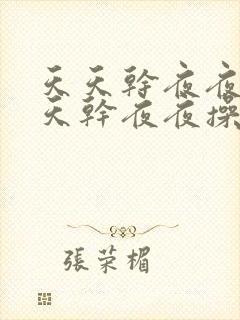 天天幹夜夜
天幹夜夜操
張荣楣